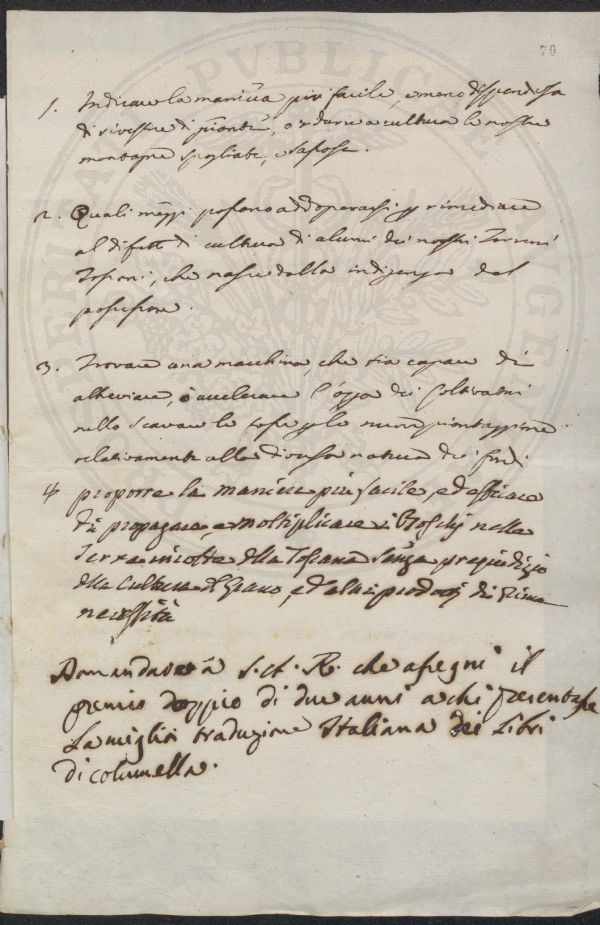 70
1. Indicare la maniera più facile, e meno dispendiosa
di rivestire di piante, o ridurre a cultura le nostre
montagne spogliate, e sassose.
2. Quali mezzi possono addoperarsi p rimediare
al difetto di cultura di alcuni dei nostri Terreni
Toscani, che nasce dalla indigenza del
possessore.
3. Trovare una macchina, che sia capace di
alleviare, o accelerare l'opra dei Coltivatori
nello scavare le fosse p le nuove piantazioni
relativamente alla diversa natura dei fondi
4 proporre la maniera più facile, ed efficace
di propagare, e moltiplicare i Boschi nelle
Terre incolte della Toscana senza pregiudizio
della Cultura del Grano, e d'altri prodotti di prima
necessità
Domandare a S. A. R. che assegni il
premio doppio di due anni a chi presentasse
La miglior traduzione Italiana dei Libri
di columella.